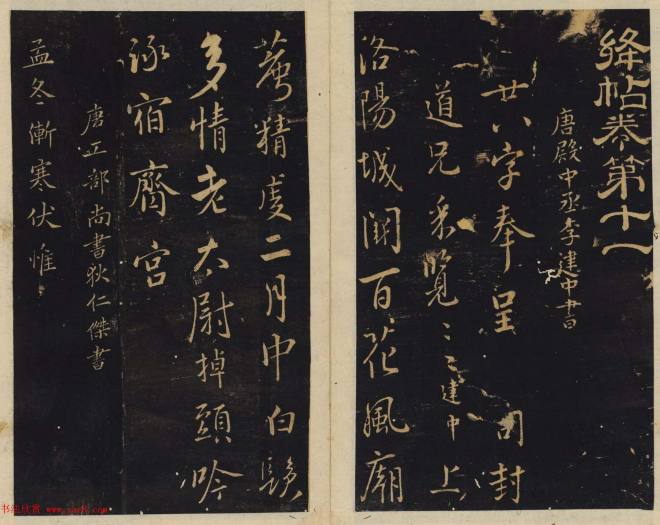 絳帖卷第十一
唐殿中丞李建中書
廿八字奉呈 司封
道兄采覽 建中上
洛陽城闕百花風廟
精虔二月中白鬚
多情老大尉掉頭吟
宿齋宮
唐工部尚書狄仁傑書
孟冬漸寒伏惟
书法欣赏